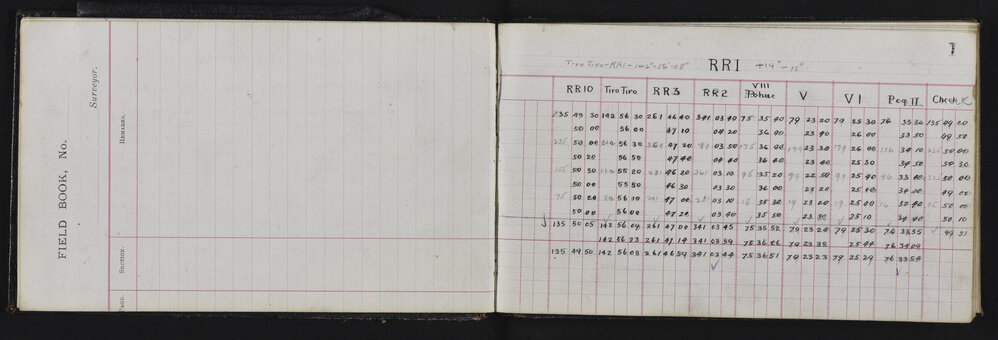 FIELD BOOK, No.
Surveyor.
REMARKS.
SECTION.
PAGE.
1
Tiro Tiro-RR1 - 142°-56'-08" RR1 +14" - 15"
RR10 Tiro Tiro RR3 RR2 VIII Pohue V VI Peg II Check R
49 30 142 56 30 261 46 40 341 03 40 75 35 40 79 23 20 79 25 30 76 33 30 135 49 20
50 00 56 00 47 10 04 20 36 00 23 40 26 00 33 50 49 50
50 00 56 30 47 20 03 50 36 00 23 30 26 00 34 10 50 00
50 20 56 50 47 40 04 40 36 40 23 40 25 30 34 50 50 30
50 30 55 20 46 20 03 10 35 20 22 50 25 40 33 40 50 00
50 00 55 50 46 30 03 30 36 00 23 20 25 40 34 00 49 00
75 50 20 56 10 47 00 03 10 35 30 23 20 25 00 32 40 50 00
50 00 56 00 47 20 03 40 35 50 23 30 25 10 34 40 50 10
135 50 05 142 56 09 261 47 00 341 03 45 75 35 52 79 23 24 79 25 30 76 33 55 49 51
142 56 23 261 47 14 341 03 59 75 36 06 79 23 38 25 44 76 34 09
135 49 50 142 56 08 261 46 59 341 03 44 75 35 51 79 23 23 79 25 29 76 33 54